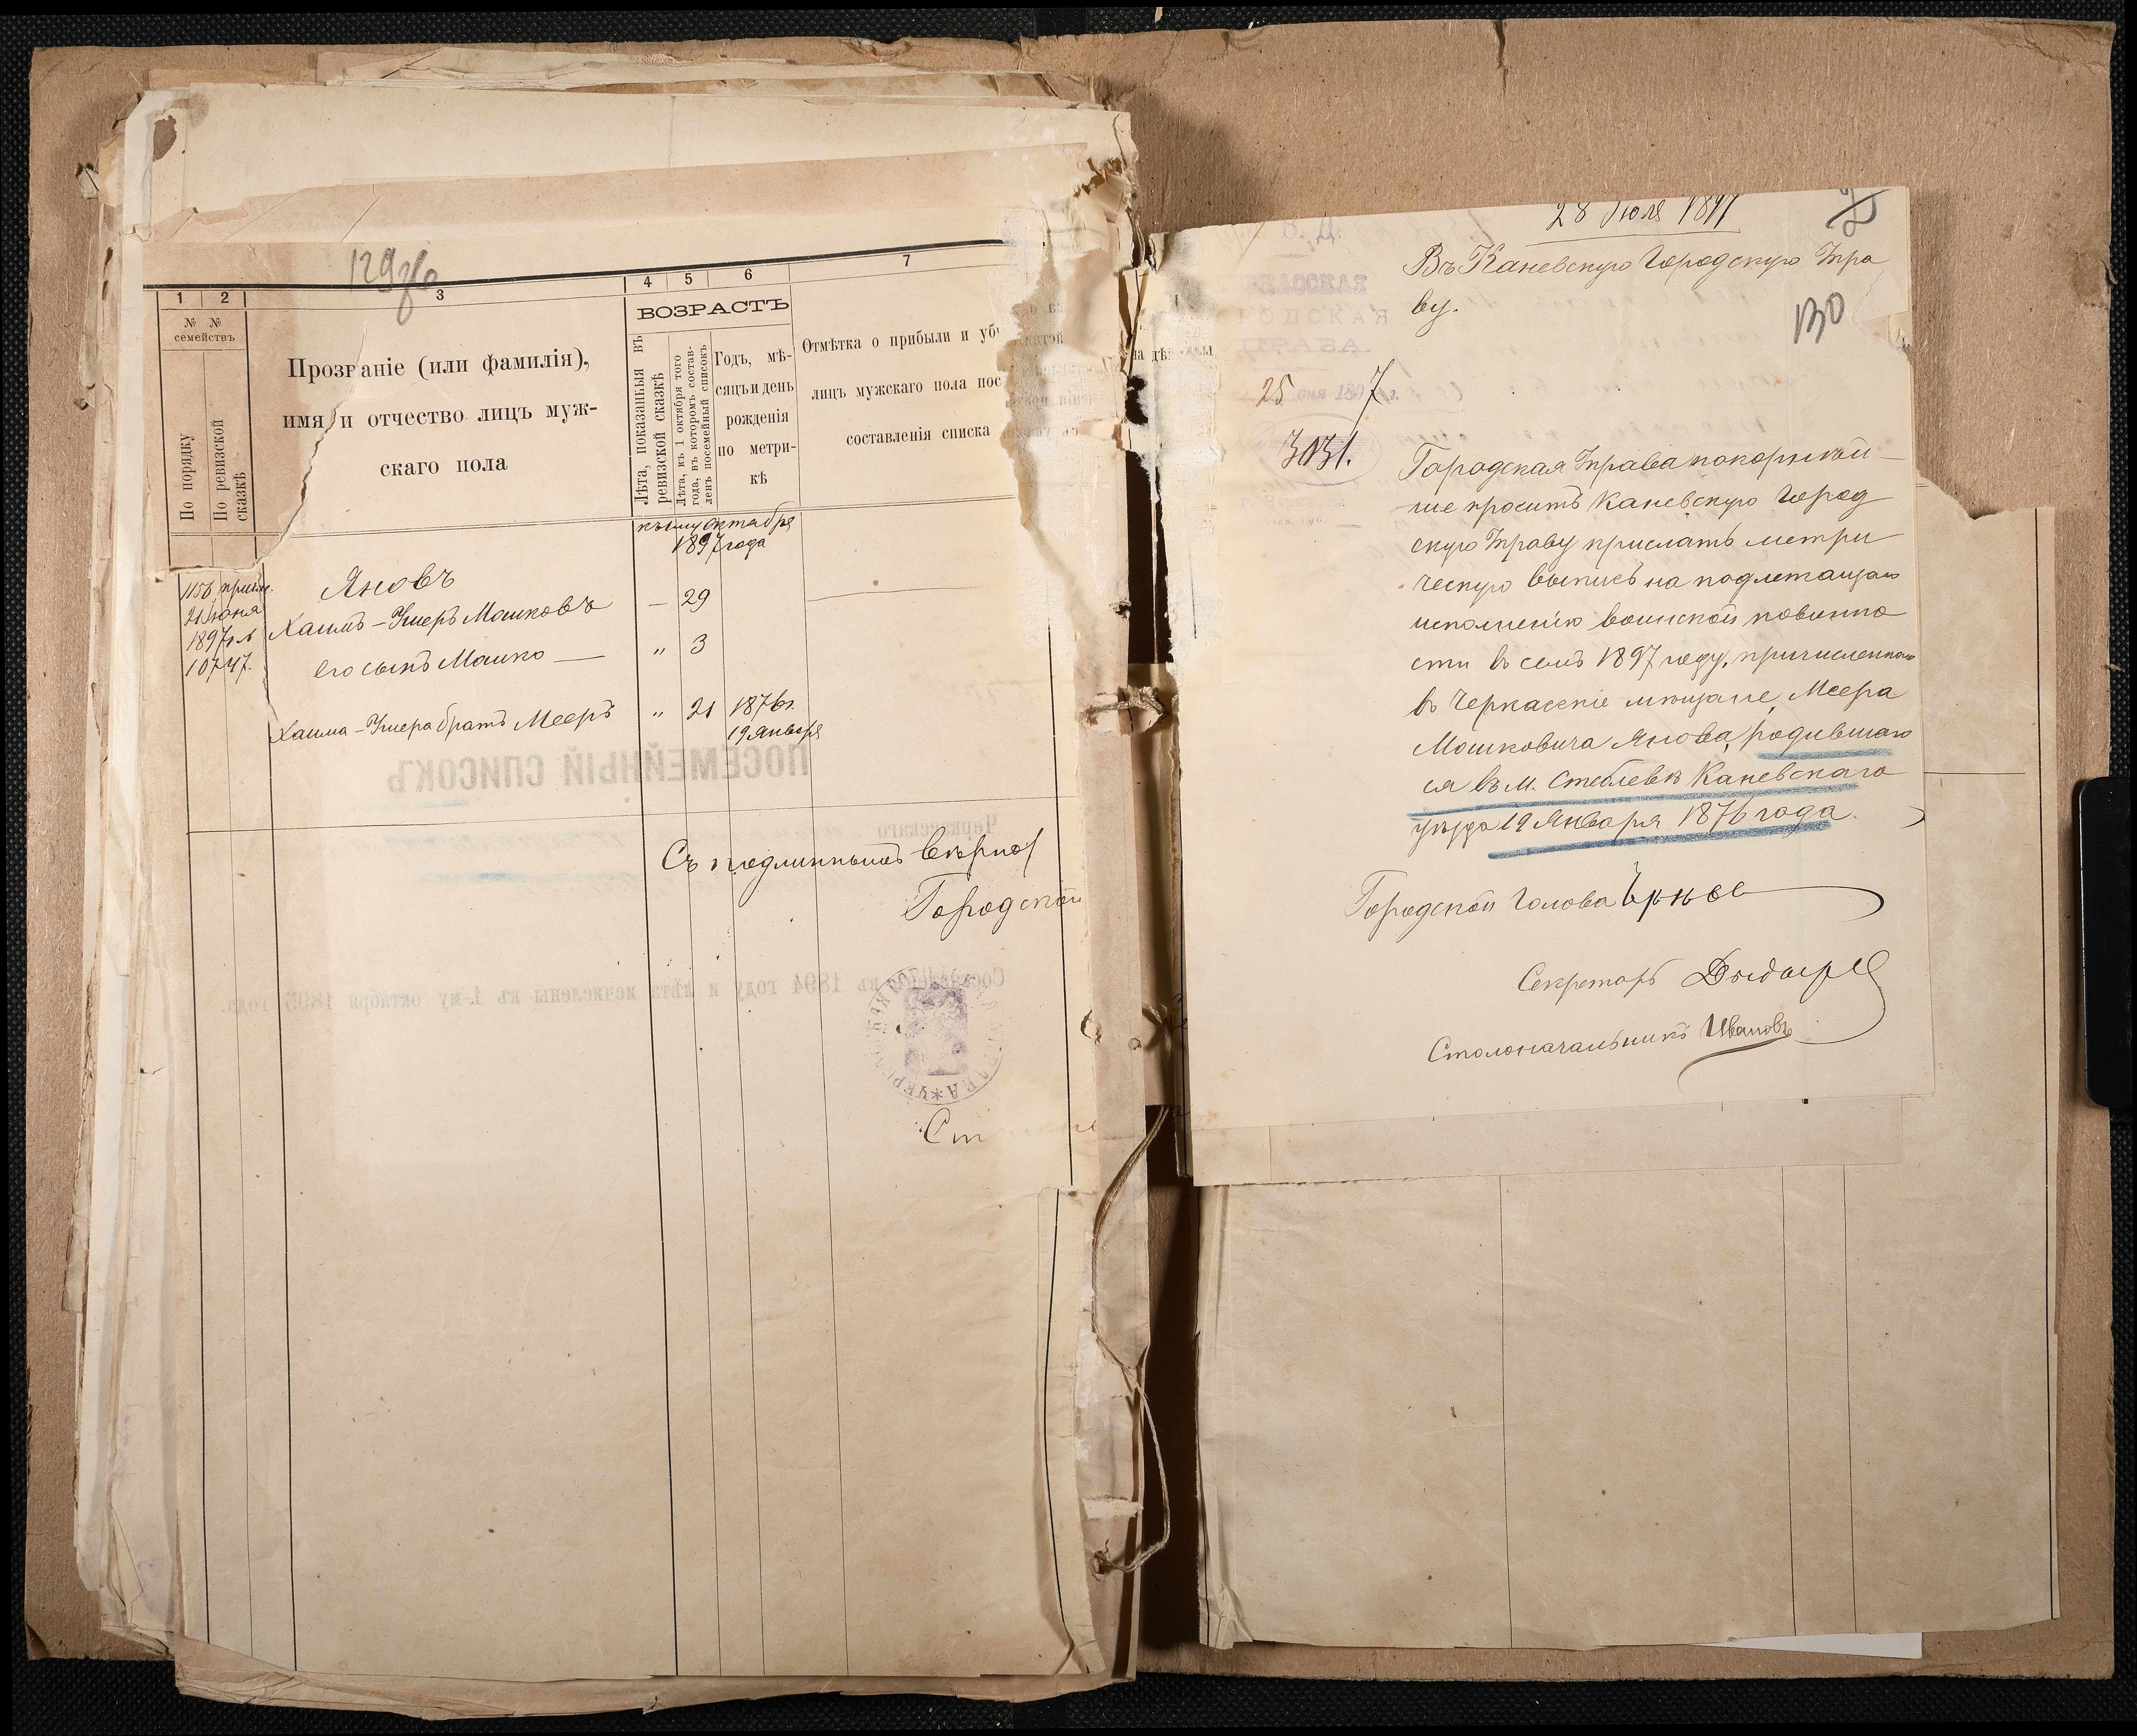 129об
1 2 3 4 5 6 7
№ № семействъ
По порядку
По ревизской сказкѣ
Прозваніе (или фамилія),
имя и отчество лицъ муж-
скаго пола
ВОЗРАСТЪ
Лѣта, показанныя въ
ревизской сказкѣ
Лѣта, къ 1 октября того
года, въ которомъ состав-
ленъ посемейный списокъ
Годъ, мѣ-
сяцъ и день
рожденія
по метри-
кѣ
Отмѣтка о прибыли и уб
лицъ мужскаго пола пос
составленія списка
къ 1му октября
1897 года
1156
21 Іюня
1897 г. №
10747.
Яновъ
Хаимъ-Ушеръ Мошковъ — 29
его сынъ Мошко — " 3
Хаима-Ушера братъ Мееръ " 21 1876 г.
19 Января
ПОСЕМЕЙНЫЙ СПИСОКЪ
Черкасскаго
Съ подлиннымъ вѣрно
Городской
Составленъ въ 1894 году и лѣта исчислены къ 1-му октября 1895 года.
28 Іюля 1897
Въ Каневскую Городскую Упра
ву.
130
В. Д.
РОДСКАЯ
ПРАВА.
25 Іюня 1897 г.
3031.
Городская Управа покорнѣй-
ше проситъ Каневскую Город
скую Управу прислать метри
ческую выпись на подлежащаго
исполненію воинской повинно
сти въ семъ 1897 году, причисленнаго
въ Черкасскіе мѣщане, Меера
Мошковича Янова, родившаго
ся въ м. Стеблевѣ Каневскаго
уѣзда 19 Января 1876 года.
Городской Голова
Секретарь
Столоначальникъ Ивановъ